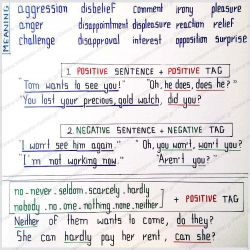 MEANING
aggression disbelief comment irony pleasure
anger disappointment displeasure reaction relief
challenge disapproval interest opposition surprise
1. POSITIVE SENTENCE + POSITIVE TAG
"Tom wants to see you!" "Oh, he does, does he?"
You lost your precious, gold watch, did you?
2. NEGATIVE SENTENCE + NEGATIVE TAG
"I won't see him again." "Oh, you won't, won't you?"
"I'm not working now." "Aren't you?"
no - never - seldom - scarcely - hardly
nobody - no one - nothing - none - neither + POSITIVE TAG
Neither of them wants to come, do they?
She can hardly pay her rent, can she?